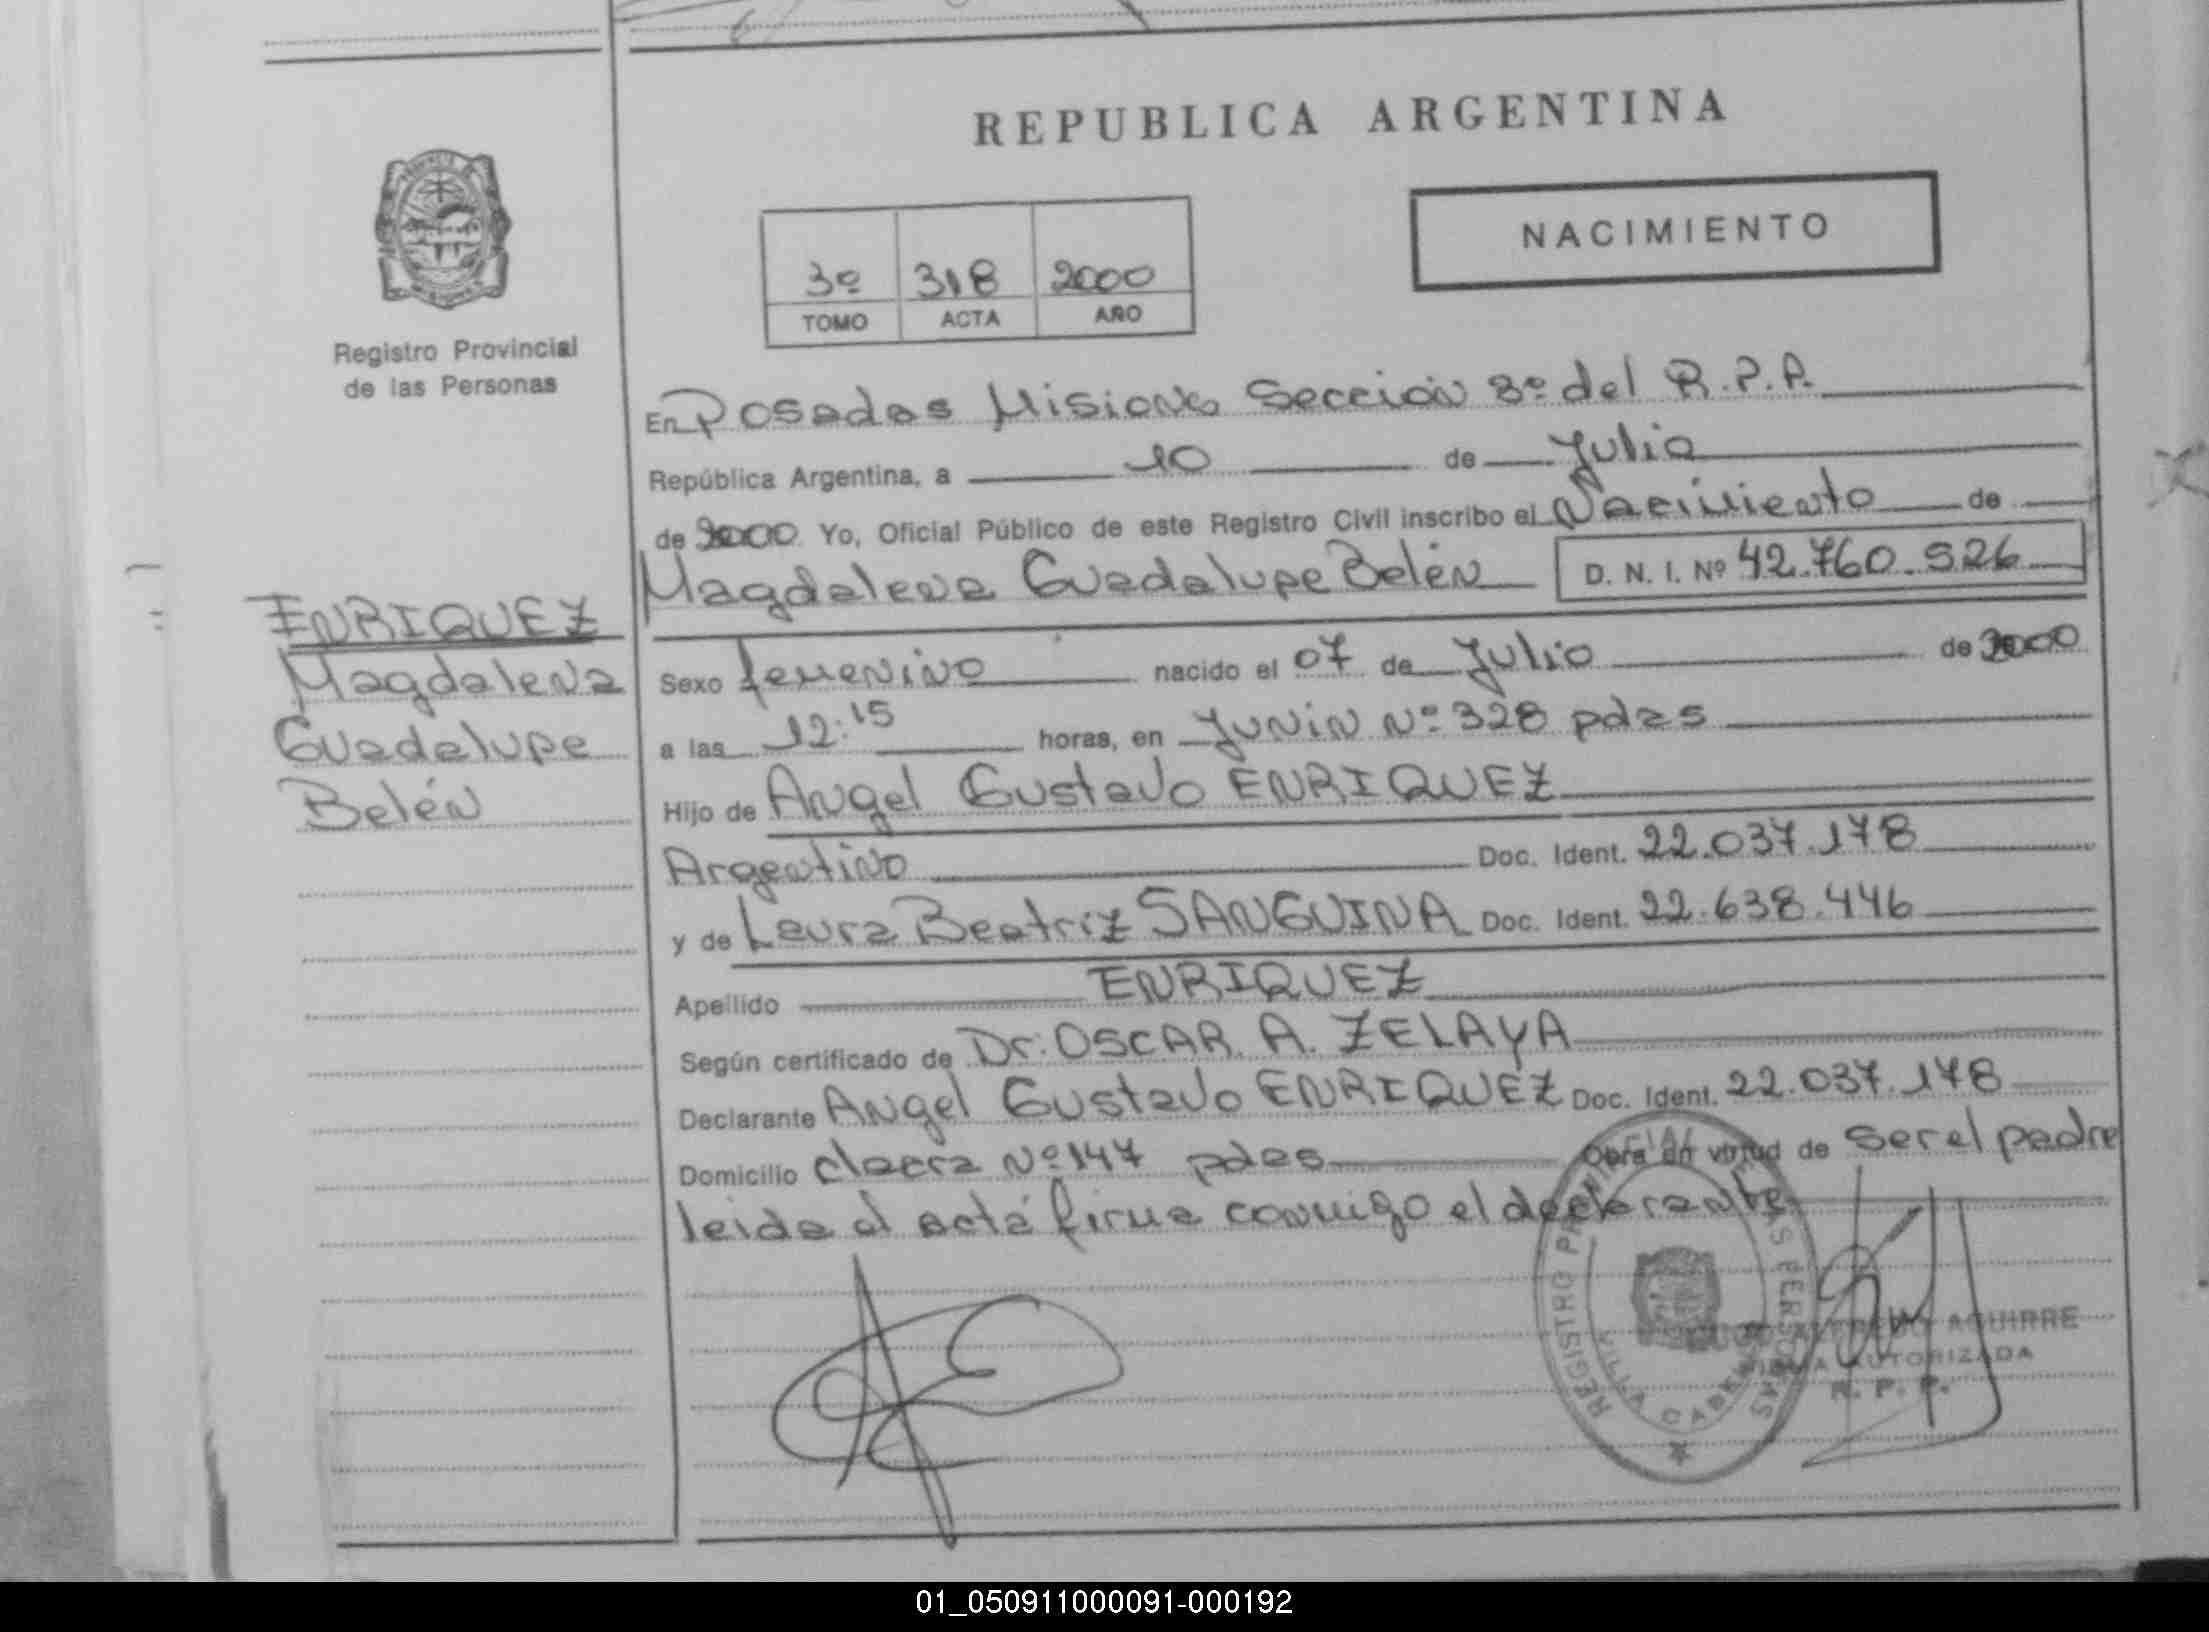 REPUBLICA ARGENTINA
NACIMIENTO
3º 318 2000
TOMO ACTA AÑO
Registro Provincial
de las Personas
En Posadas Misiones Sección 3º del R.P.P.
República Argentina, a 10 de Julio
de 2000 Yo, Oficial Público de este Registro Civil inscribo el Nacimiento de
Magdalena Guadalupe Belén D. N. I. Nº 42.760.526
ENRIQUEZ
Magdalena
Guadalupe
Belén
Sexo femenino nacido el 07 de Julio de 2000
a las 12:15 horas, en Junin Nº 328 pdas
Hijo de Angel Gustavo ENRIQUEZ
Argentino Doc. Ident. 22.037.178
y de Laura Beatriz SANGUINA Doc. Ident. 22.638.446
Apellido ENRIQUEZ
Según certificado de Dr. OSCAR A. ZELAYA
Declarante Angel Gustavo ENRIQUEZ Doc. Ident. 22.037.178
Domicilio chacra Nº 147 pdas Obra en virtud de ser el padre
leida el acta firma conmigo el declarante
REGISTRO PROVINCIAL DE LAS PERSONAS
VILLA CABELLO
AGUIRRE
FIRMA AUTORIZADA
R. P. P.
01_050911000091-000192